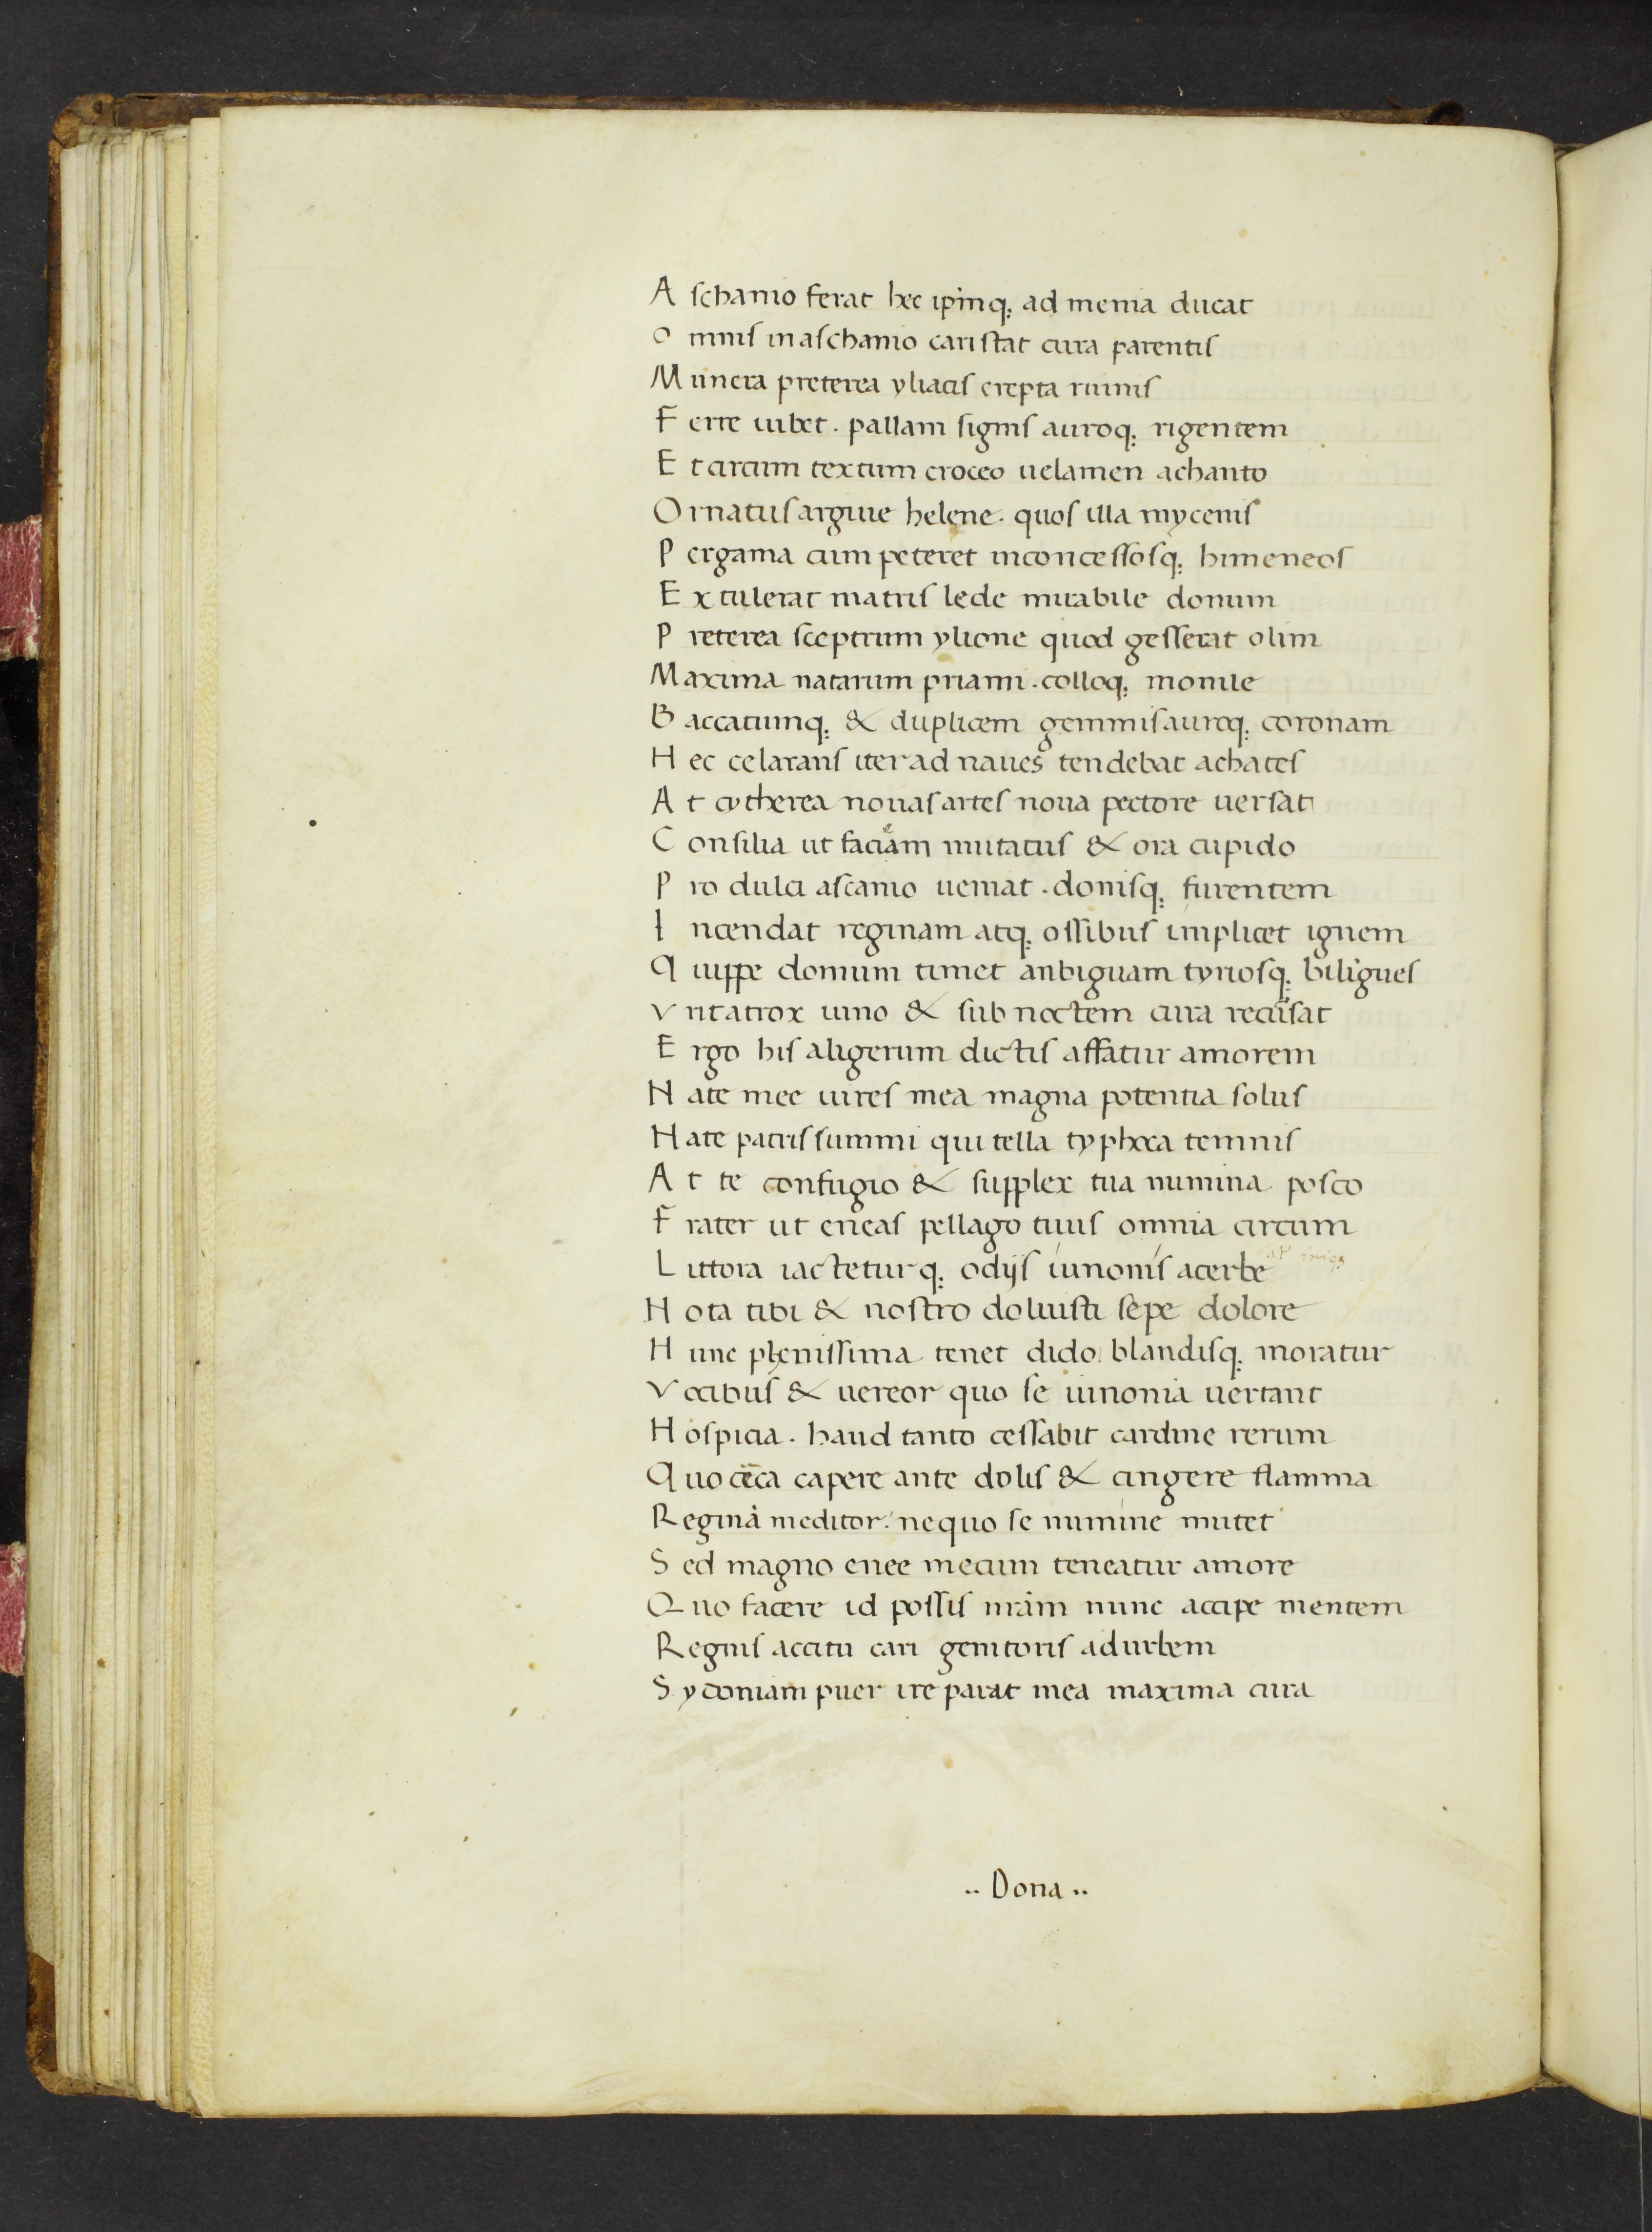 Aschanio ferat hec ip̄inq; ad menia ducat
Omnis in aschanio cari stat cura parentis
Munera preterea yliacis erepta ruinis
Ferre iubet · pallam signis auroq; rigentem
Et circum textum croceo uelamen achanto
Ornatus argiue helene · quos illa mycenis
Pergama cum peteret inconcessosq; himeneos
Extulerat matris lede mirabile donum
Preterea sceptrum ylione quod gesserat olim
Maxima natarum priami · colloq; monile
Baccatumq; & duplicem gemmis auroq; coronam
Hec celarans iter ad naues tendebat achates
At cytherea nouas artes noua pectore uersat
Consilia ut faciem mutatus & ora cupido
Pro dulci ascanio ueniat · donisq; furentem
Incendat reginam atq; ossibus implicet ignem
Quippe domum timet anbiguam tyriosq; bilīgues
Vrit atrox iuno & sub noctem cura recursat
Ergo his aligerum dictis affatur amorem
Nate mee uires mea magna potentia solus
Nate patris summi qui tella typhoea temnis
At te confugio & supplex tua numina posco
Frater ut eneas pellago tuus omnia circum
Littora iacteturq; odijs iunonis acerbe
Nota tibi & nostro doluisti sepe dolore
Hunc phenissima tenet dido blandisq; moratur
Vocibus & uereor quo se iunonia uertant
Hospicia · haud tanto cessabit cardine rerum
Quo ceca capere ante dolis & cingere flamma
Reginā meditor · ne quo se numine mutet
Sed magno enee mecum teneatur amore
Quo facere id possis nrām nunc accipe mentem
Regnis accitu cari genitoris ad urbem
Sydoniam puer ire parat mea maxima cura
·· Dona ··